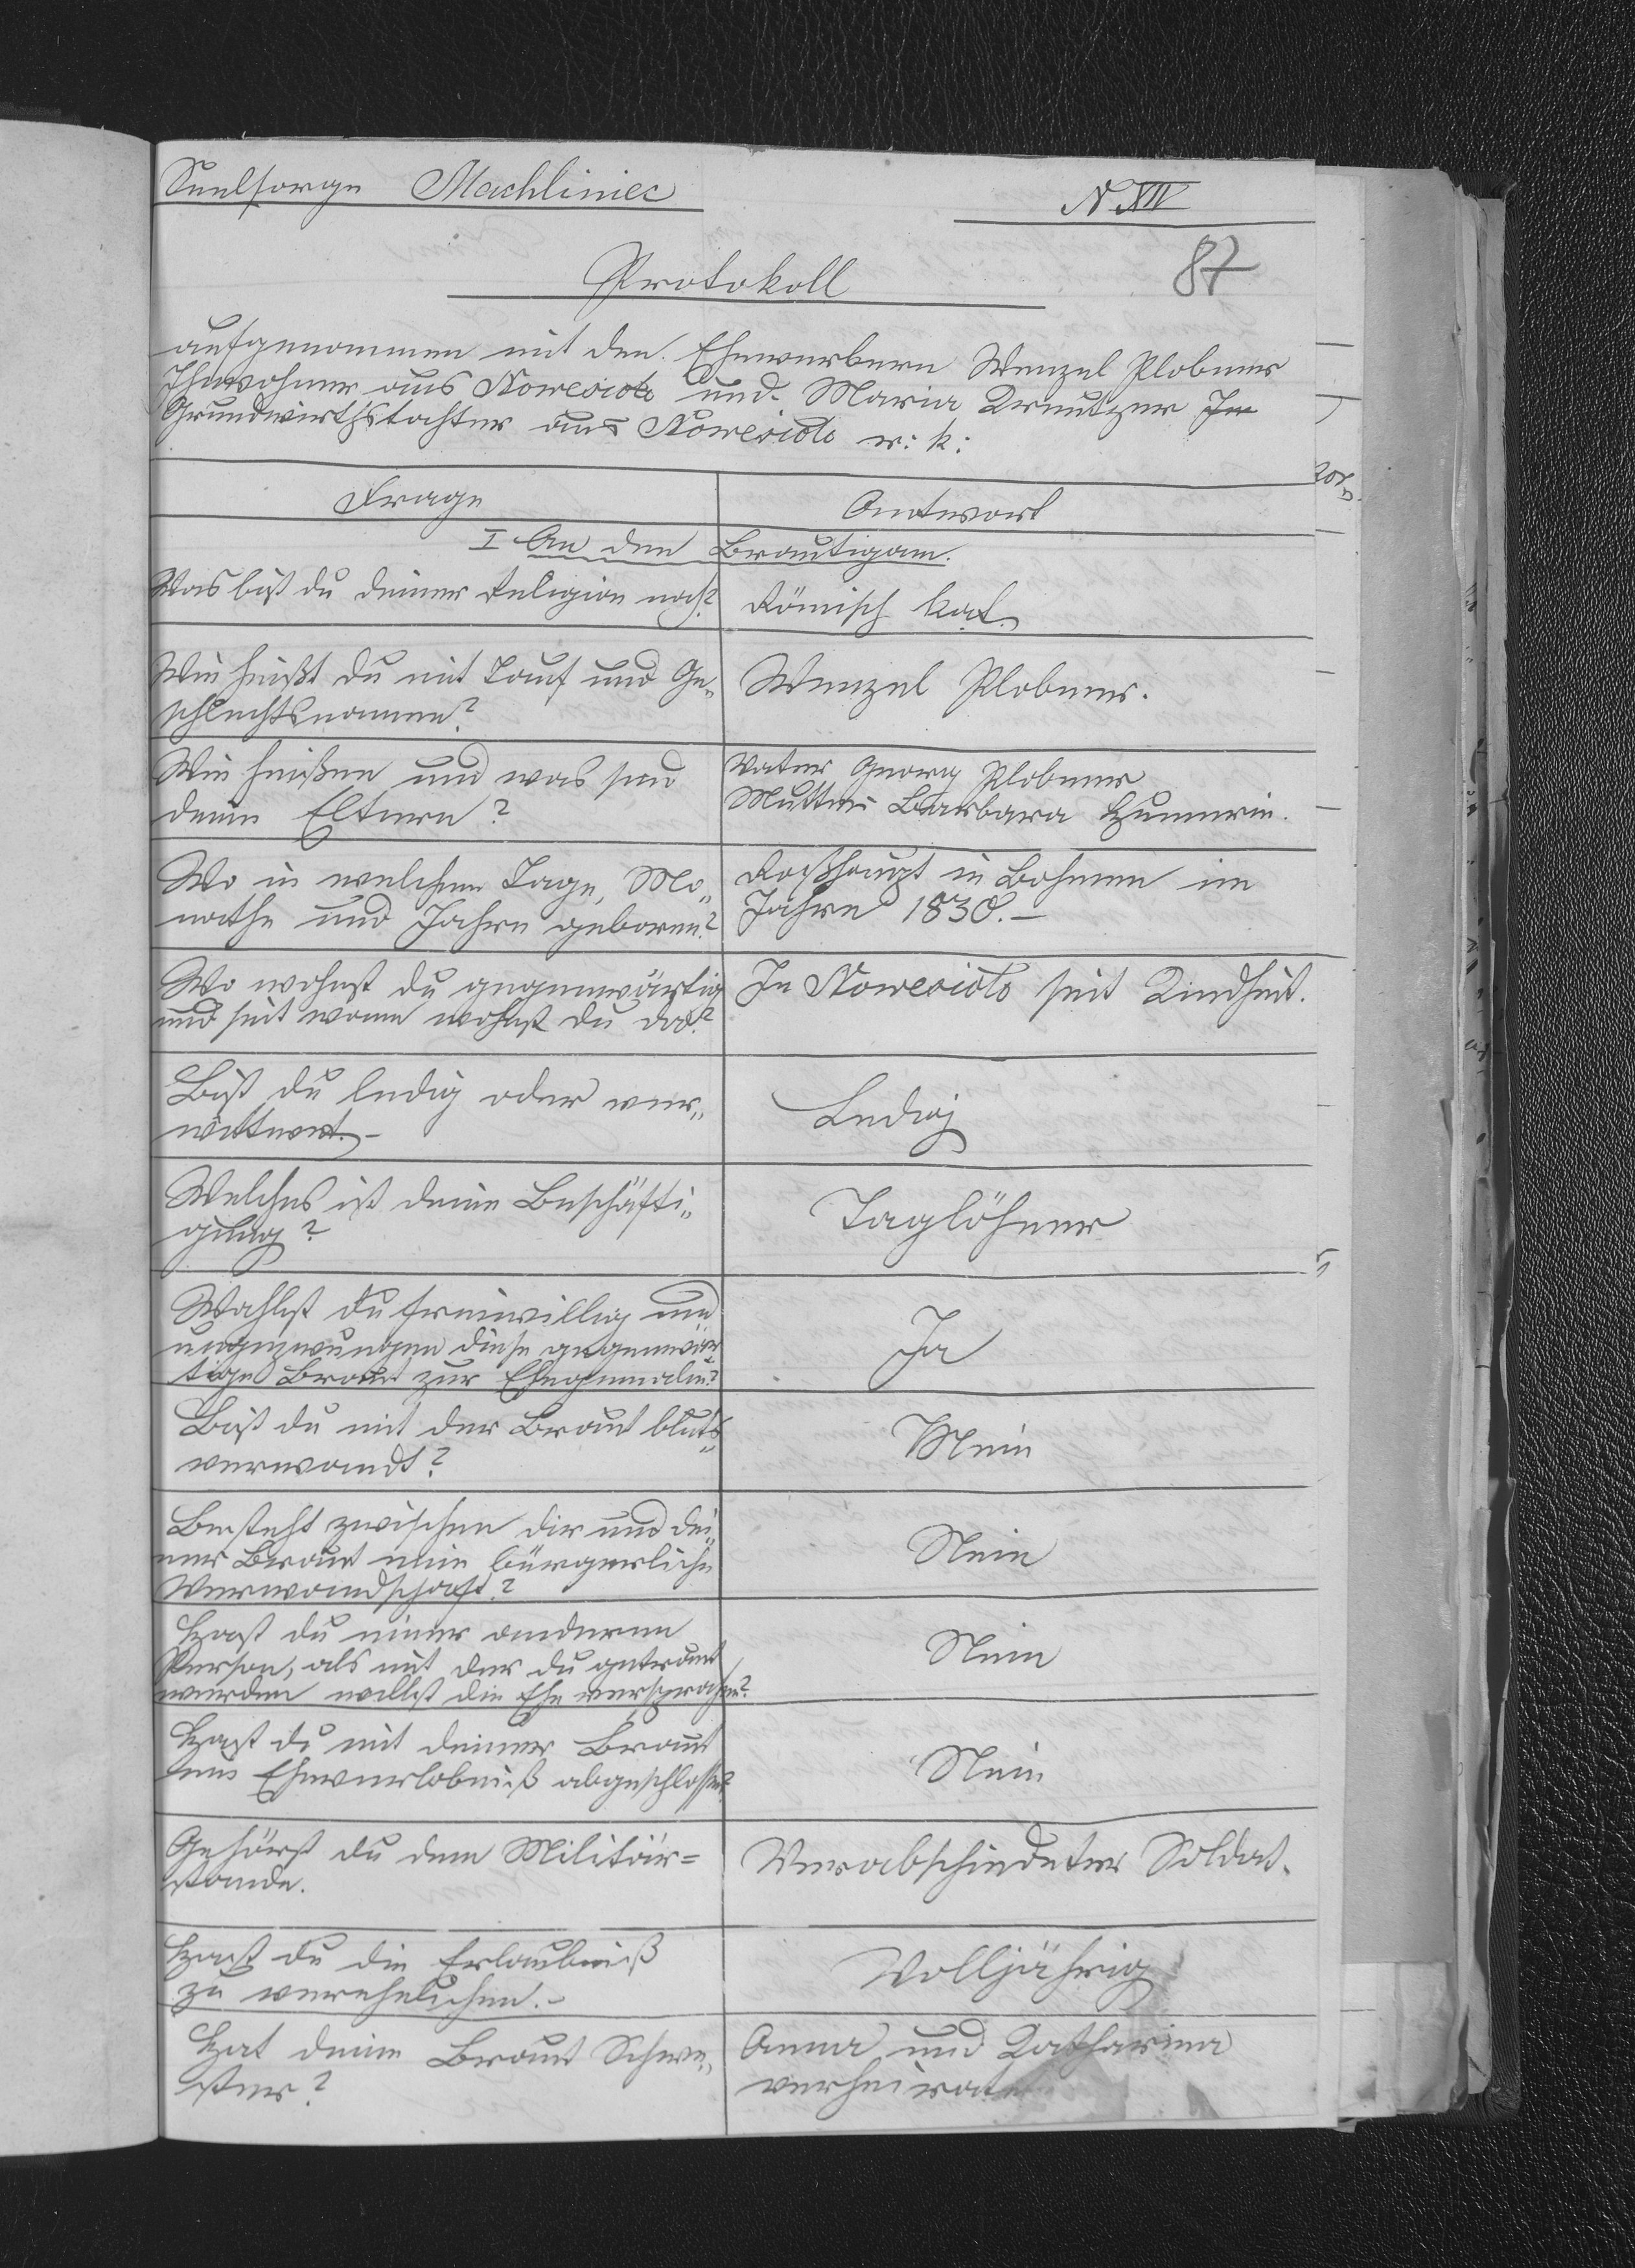 Seelsorge Machliniec
N. XIV
87
Protokoll
aufgenommen mit den Ehewerbern Wenzel Plobner
Inwohner aus Nowesioło und Maria Kreutzer
Grundwirthstochter aus Nowesioło r: k:
Frage
Antwort
I An den Brautigam.
Was bist du deiner Religion nach?
Römisch kat.
Wie heißt du mit Tauf und Ge„
schlechtsnamen?
Wenzel Plobner.
Wie heißen und was sind
deine Eltern?
Vater Georg Plobner
Mutter Barbara
Wo in welchem Tage, Mo„
nathe und Jahre geboren?
Roßhaupt in Bohmen im
Jahre 1838. –
Wo wohnst du gegenwärtig
und seit wann wohnst du da?
In Nowesioło seit Kindheit.
Bist du ledig oder ver„
wittwet. –
Ledig
Welches ist deine Beschäfti„
gung?
Taglöhner
Wahlst du freiwillig und
ungezwungen diese gegenwär
tige Braut zur Ehegemalin?
Ja
Bist du mit der Braut bluts„
verwandt?
Nein
Besteht zwischen dir und dei„
ner Braut eine bürgerliche
Verwandschaft?
Nein
Hast du einer anderen
Person, als mit der du getraut
werden willst die Ehe versprochen?
Nein
Hast du mit deiner Braut
kein Eheverlobniß abgeschlossen?
Nein
Gehörst du dem Militär=
stande.
Verabschiedeter Soldat.
Hast du die Erlaubniß
zu verehelichen. –
Volljährig
Hat deine Braut Schwe„
ster?
Anna und Katharina